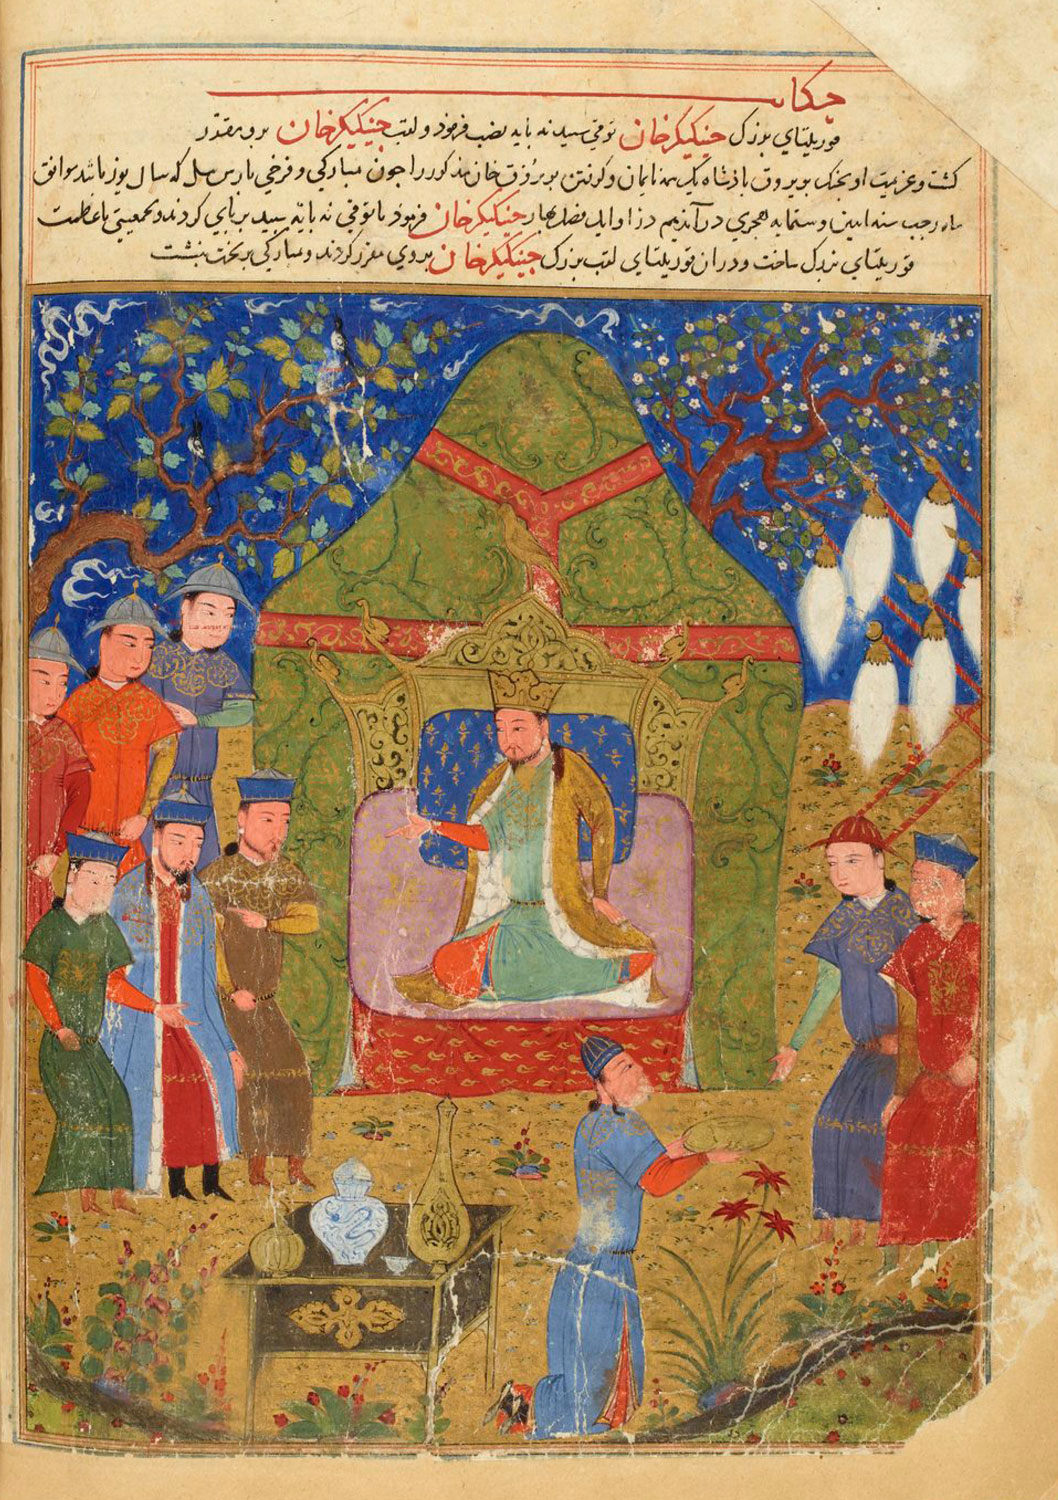 حکایت
قوریلتای بزرک جینکیکیزخان توقی سپید نه پایه نصب فرمود و لقب جینکیکیزخان برو مقرر
کشت و عزیمت او بجنک بویروق پاذشاه یک نایمان و کرفتن بویروق خان مذکور را جون مبارکی و فرخی بارس ییل که سال یوز باشد موافق
ماه رجب سنه اثنین و ستمایه هجری در آمذ هم در اوایل فصل بهار جینکیکیزخان فرموذ تا توقی نه پایه سپید بر پای کردند و بجمعیتی با عظمت
قوریلتای بزرک ساخت و در ان قوریلتای لقب بزرک جینکیکیزخان بر وی مقرر کردند و مبارکی بر تخت بنشست